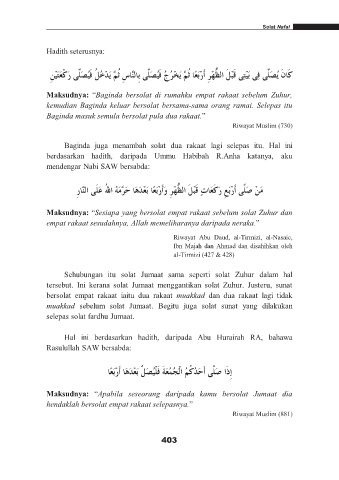 Solat Nafal
Hadith seterusnya:
كَانَ يُصَلِّى فِى بَيْتِى قَبْلَ الظُّهْرِ أَرْبَعًا ثُمَّ يَخْرُجُ فَيُصَلِّى بِالنَّاسِ ثُمَّ يَدْخُلُ فَيُصَلِّى رَكْعَتَيْنِ
Maksudnya: “Baginda bersolat di rumahku empat rakaat sebelum Zuhur,
kemudian Baginda keluar bersolat bersama-sama orang ramai. Selepas itu
Baginda masuk semula bersolat pula dua rakaat.”
Riwayat Muslim (730)
Baginda juga menambah solat dua rakaat lagi selepas itu. Hal ini
berdasarkan hadith, daripada Ummu Habibah R.Anha katanya, aku
mendengar Nabi SAW bersabda:
مَنْ صَلَّى أَرْبَعَ رَكَعَاتٍ قَبْلَ الظُّهْرِ وَأَرْبَعًا بَعْدَهَا حَرَّمَهُ اللهُ عَلَى النَّارِ
Maksudnya: “Sesiapa yang bersolat empat rakaat sebelum solat Zuhur dan
empat rakaat sesudahnya, Allah memeliharanya daripada neraka.”
Riwayat Abu Daud, al-Tirmizi, al-Nasaie,
Ibn Majah dan Ahmad dan disahihkan oleh
al-Tirmizi (427 & 428)
Sehubungan itu solat Jumaat sama seperti solat Zuhur dalam hal
tersebut. Ini kerana solat Jumaat menggantikan solat Zuhur. Justeru, sunat
bersolat empat rakaat iaitu dua rakaat muakkad dan dua rakaat lagi tidak
muakkad sebelum solat Jumaat. Begitu juga solat sunat yang dilakukan
selepas solat fardhu Jumaat.
Hal ini berdasarkan hadith, daripada Abu Hurairah RA, bahawa
Rasulullah SAW bersabda:
إِذَا صَلَّى أَحَدُكُمُ الْجُمُعَةَ فَلْيُصَلِّ بَعْدَهَا أَرْبَعًا
Maksudnya: “Apabila seseorang daripada kamu bersolat Jumaat dia
hendaklah bersolat empat rakaat selepasnya.”
Riwayat Muslim (881)
403